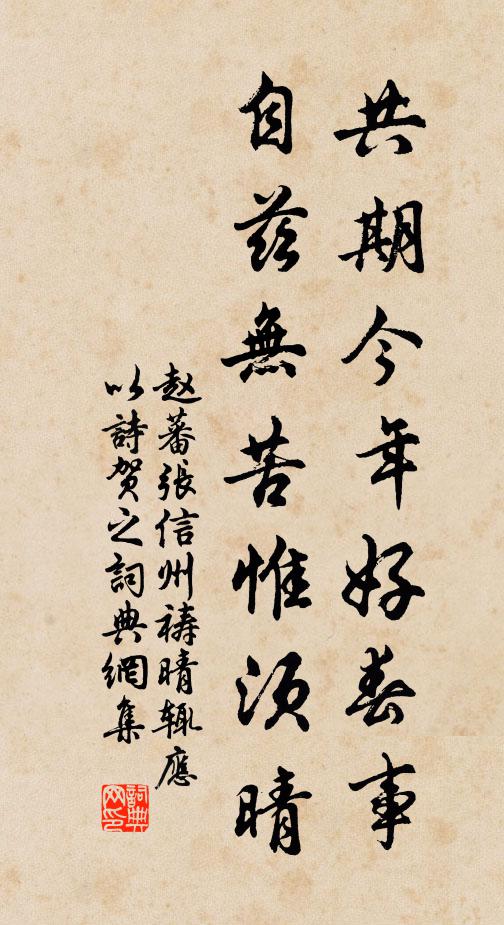 共期今年好春事
自茲無苦惟須晴
赵蕃張信州禱晴辄應
以詩贺之詞典網集
詞典
网印